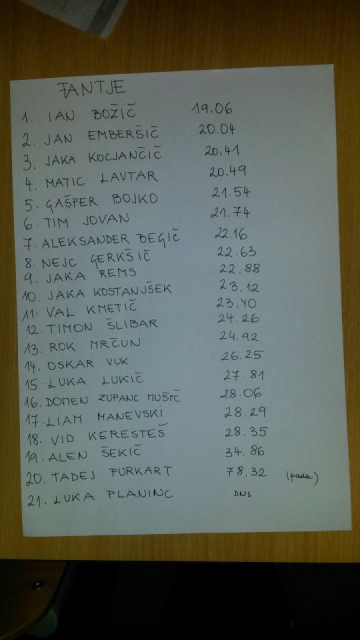 FANTJE
1. IAN BOŽIČ 19.06
2. JAN EMBERŠIČ 20.04
3. JAKA KOCJANČIČ 20.41
4. MATIC LAVTAR 20.49
5. GAŠPER BOJKO 21.54
6. TIM JOVAN 21.74
7. ALEKSANDER BEGIČ 22.16
8. NEJC GERKŠIČ 22.63
9. JAKA REMS 22.88
10. JAKA KOSTANJŠEK 23.12
11. VAL KMETIČ 23.40
12. TIMON ŠLIBAR 24.26
13. ROK MRČUN 24.92
14. OSKAR VUK 26.25
15. LUKA LUKIČ 27.81
16. DOMEN ZUPANC MUŠIČ 28.06
17. LIAM MANEVSKI 28.29
18. VID KERESTEŠ 28.35
19. ALEN ŠEKIČ 34.86
20. TADEJ PURKART 78.32 (padec)
21. LUKA PLANINC DNS